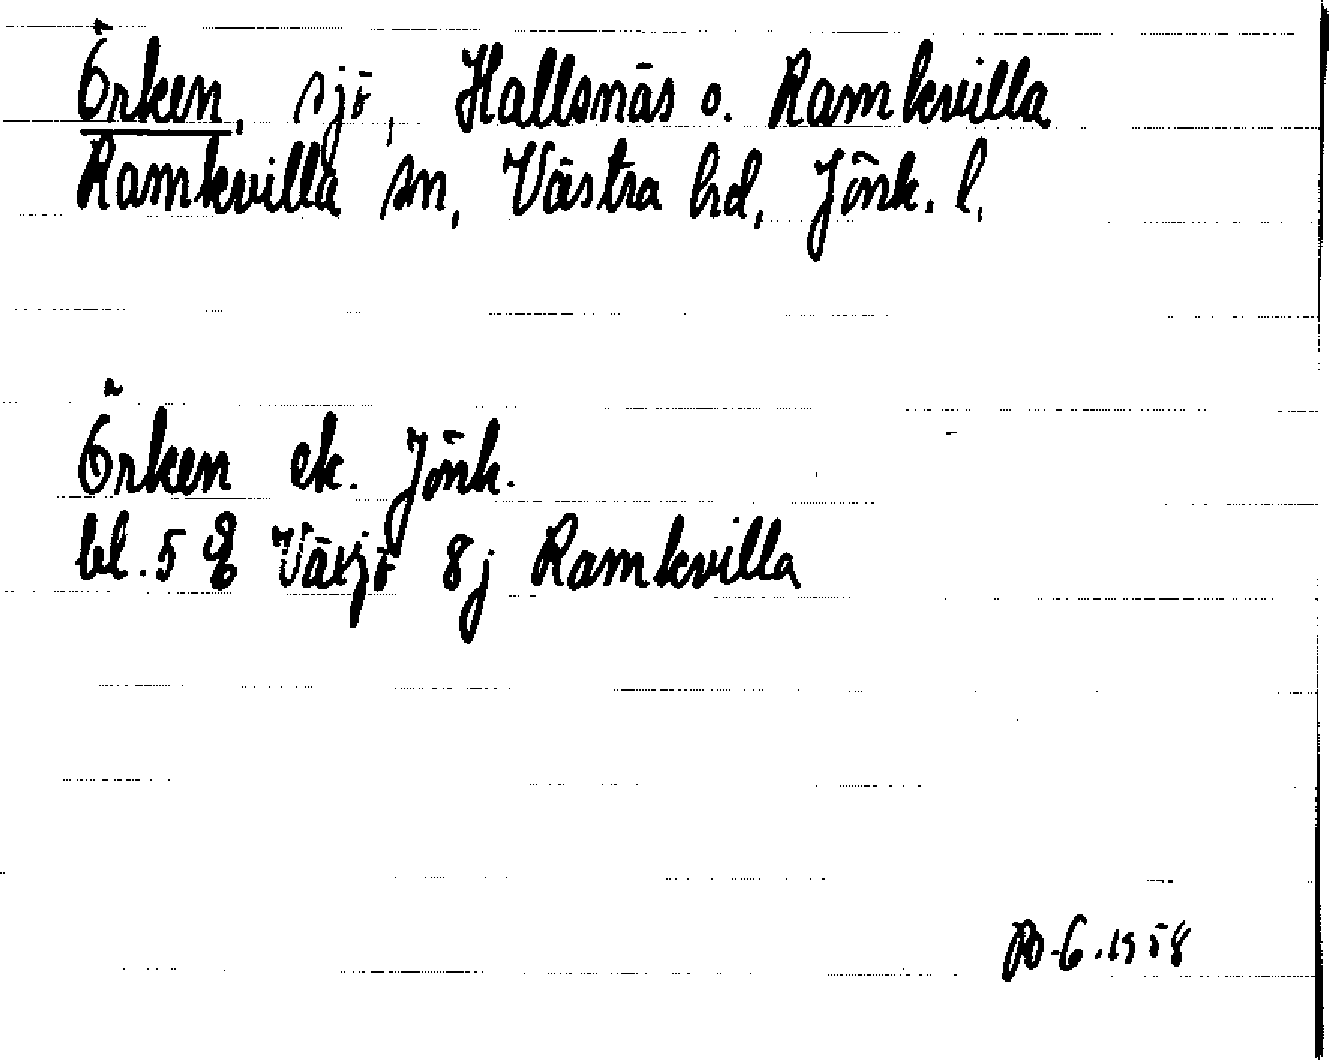 Örken, sjö, Hallsnäs o. Ramkvilla
Ramkvilla sn, Västra hd, Jönk. l.
Örken ek. Jönk.
bl. 5 E Växjö 8j Ramkvilla
PO-G.1958